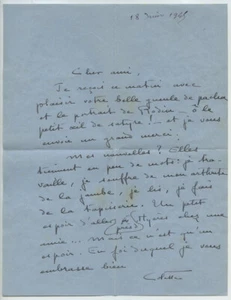 Cher ami,
Je reçois ce matin avec
plaisir votre belle gueule de
et le portrait de Rodin à le
petit œil de satyre ! et je vous
envoie un grand merci.
Mes nouvelles ? Elles
tiennent en peu de mots : je tra-
vaille, je souffre de mon arthrite
de la jambe, je lis, je fais
de la tapisserie. Un petit
espoir d'aller à Hyères chez une
(près)
amie... Mais ce n'est qu'un
espoir. En foi duquel je vous
embrasse bien
Colette